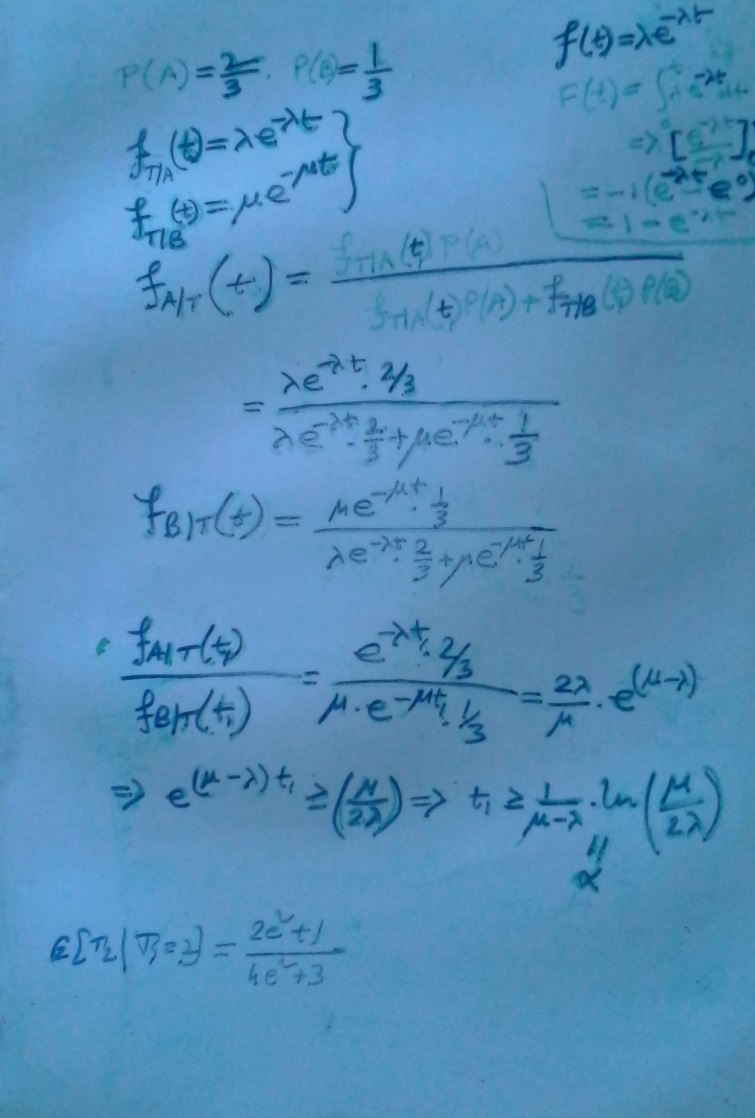 P(A) = 2/3. P(B) = 1/3
f(t) = λe^{-λt}
= 1 - e^{-λt}
f_{T|A}(t) = λe^{-λt}
f_{T|B}(t) = μe^{-μt}
f_{A|T}(t) = f_{T|A}(t) P(A) / f_{T|A}(t) P(A) + f_{T|B}(t) P(B)
= λe^{-λt} · 2/3 / λe^{-λt} · 2/3 + μe^{-μt} · 1/3
f_{B|T}(t) = μe^{-μt} · 1/3 / λe^{-λt} · 2/3 + μe^{-μt} · 1/3
f_{A|T}(t₁) / f_{B|T}(t₁) = e^{-λt₁} · 2/3 / μ · e^{-μt₁} · 1/3 = 2λ/μ · e^{(μ-λ)}
⇒ e^{(μ-λ)t₁} ≥ (μ/2λ) ⇒ t₁ ≥ 1/(μ-λ) · ln(μ/2λ)
α
E[T₂ | T₁ = 2] = 2e²+1 / 4e²+3